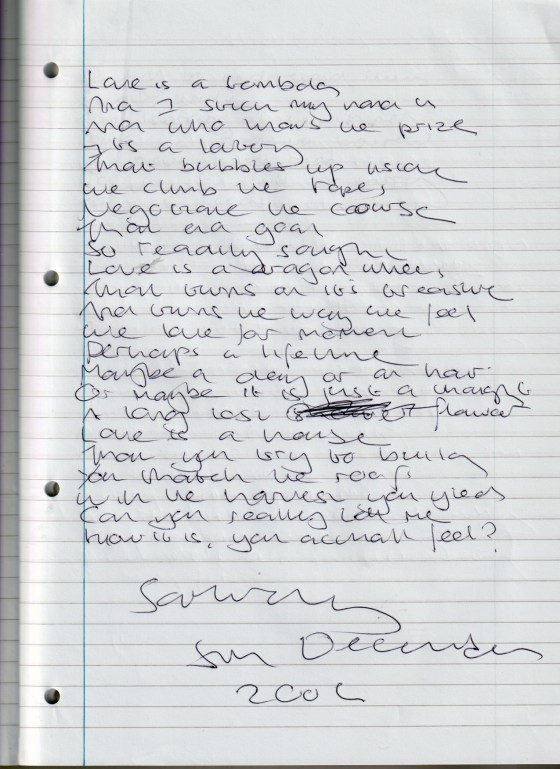 Love is a tombola
And I stick my hand in
And who knows the prize
Its a lottery
That bubbles up inside
We climb the ropes
Negotiate the course
That end goal
So readily sought
Love is a dragon wheel
That turns on its treasure
And turns the way we feel
We love for moment
Perhaps a lifetime
Maybe a day or an hour
Or maybe it is just a thought
A long lost flower
Love is a house
That you try to build
You thatch the roof
With the harvest you yield
Can you really tell me
How it is, you actually feel?
Saturday
December